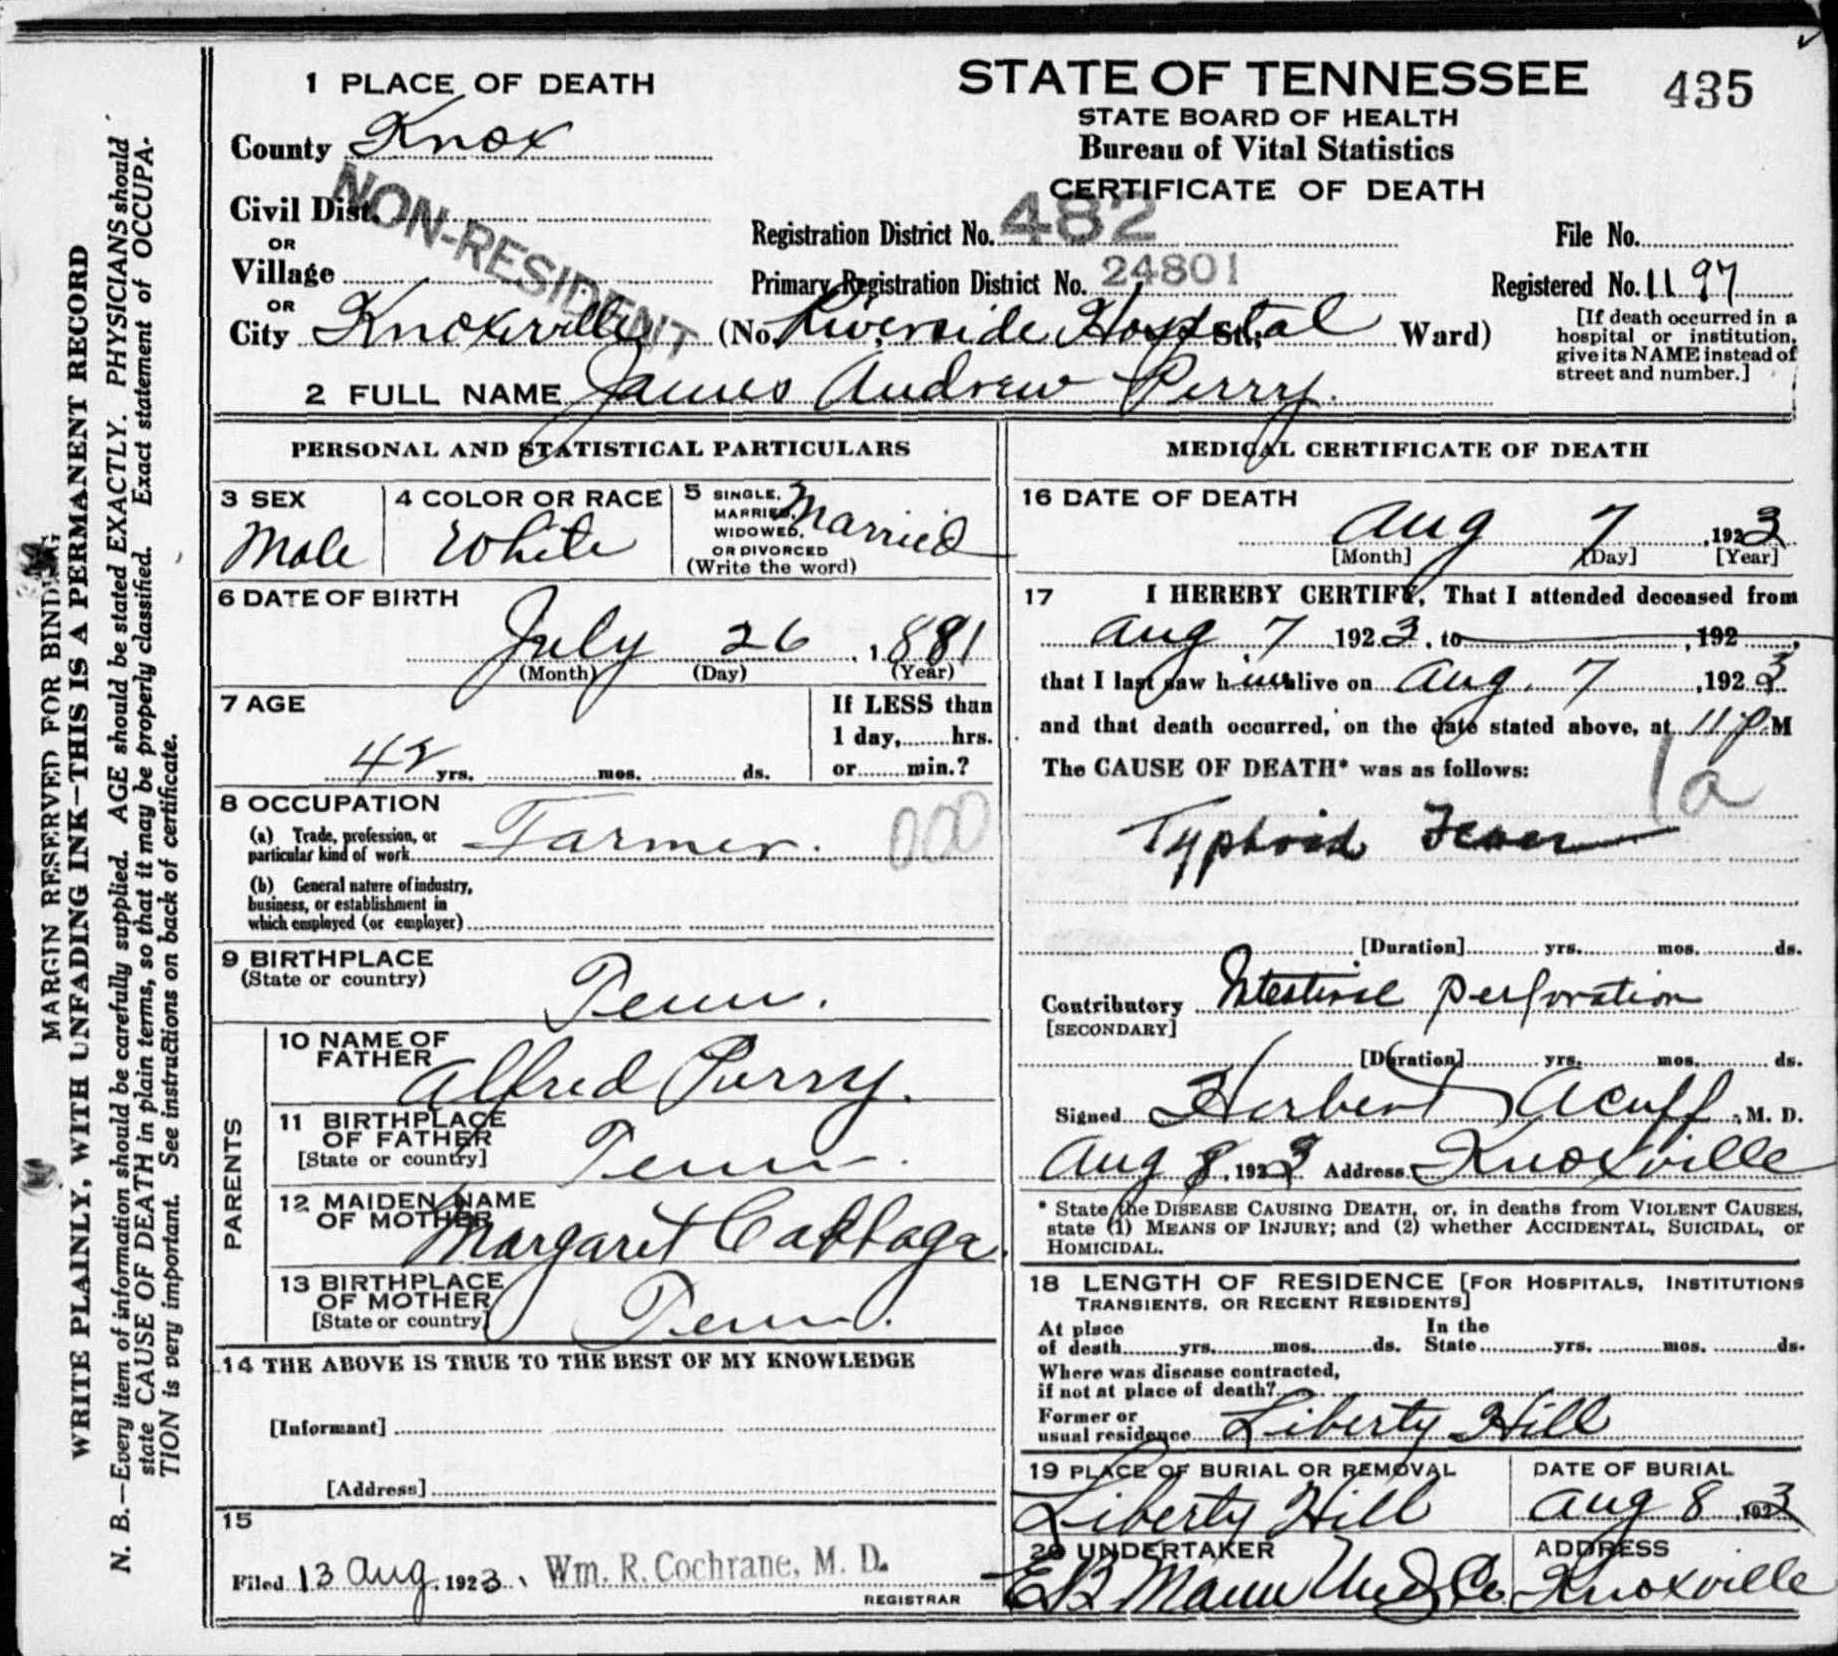 MARGIN RESERVED FOR BINDING
WRITE PLAINLY, WITH UNFADING INK—THIS IS A PERMANENT RECORD
N. B.—Every item of information should be carefully supplied. AGE should be stated EXACTLY. PHYSICIANS should
state CAUSE OF DEATH in plain terms, so that it may be properly classified. Exact statement of OCCUPA-
TION is very important. See instructions on back of certificate.
1 PLACE OF DEATH
County Knox
Civil Dist.
OR
Village
OR
City Knoxville (No. Riverside Hospital St.; Ward)
NON-RESIDENT
STATE OF TENNESSEE
435
STATE BOARD OF HEALTH
Bureau of Vital Statistics
CERTIFICATE OF DEATH
Registration District No. 482
File No.
Primary Registration District No. 24801
Registered No. 1197
[If death occurred in a
hospital or institution,
give its NAME instead of
street and number.]
2 FULL NAME James Andrew Perry.
PERSONAL AND STATISTICAL PARTICULARS
3 SEX
Male
4 COLOR OR RACE
White
5 SINGLE,
MARRIED,
WIDOWED,
OR DIVORCED
(Write the word)
Married
6 DATE OF BIRTH
July 26, 1881
(Month) (Day) (Year)
7 AGE
42 yrs. mos. ds.
If LESS than
1 day, hrs.
or min.?
8 OCCUPATION
(a) Trade, profession, or
particular kind of work Farmer.
000
(b) General nature of industry,
business, or establishment in
which employed (or employer)
9 BIRTHPLACE
(State or country)
Tenn.
PARENTS
10 NAME OF
FATHER
Alfred Perry.
11 BIRTHPLACE
OF FATHER
[State or country]
Tenn.
12 MAIDEN NAME
OF MOTHER
Margaret Cabbage.
13 BIRTHPLACE
OF MOTHER
[State or country]
Tenn.
14 THE ABOVE IS TRUE TO THE BEST OF MY KNOWLEDGE
[Informant]
[Address]
15
Filed 13 Aug, 1923, Wm. R. Cochrane, M. D.
REGISTRAR
MEDICAL CERTIFICATE OF DEATH
16 DATE OF DEATH
Aug 7, 1923
[Month] [Day] [Year]
17 I HEREBY CERTIFY, That I attended deceased from
Aug 7 1923, to , 192 ,
that I last saw him alive on Aug. 7, 1923
and that death occurred, on the date stated above, at 11 P.M
The CAUSE OF DEATH* was as follows:
1a
Typhoid Fever
[Duration] yrs. mos. ds.
Contributory Intestinal perforation
[SECONDARY]
[Duration] yrs. mos. ds.
Signed Herbert Acuff, M. D.
Aug 8, 1923 Address Knoxville
* State the DISEASE CAUSING DEATH, or, in deaths from VIOLENT CAUSES,
state (1) MEANS OF INJURY; and (2) whether ACCIDENTAL, SUICIDAL, or
HOMICIDAL.
18 LENGTH OF RESIDENCE [FOR HOSPITALS, INSTITUTIONS
TRANSIENTS, OR RECENT RESIDENTS]
At place
of death yrs. mos. ds.
In the
State yrs. mos. ds.
Where was disease contracted,
if not at place of death?
Former or
usual residence Liberty Hill
19 PLACE OF BURIAL OR REMOVAL
Liberty Hill
DATE OF BURIAL
Aug 8, 1923
20 UNDERTAKER
E B Mann Und Co.
ADDRESS
Knoxville